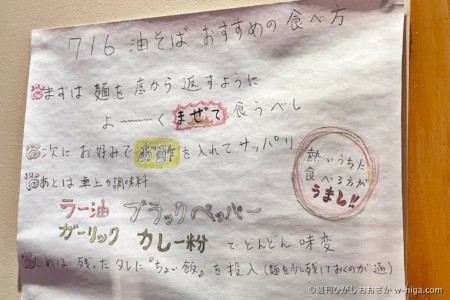 716 油そば おすすめの食べ方
まずは 麺を 底から 返すように
よ〜〜〜く まぜて 食うべし
次に お好みで お酢 を入れて サッパリ
あとは 卓上の調味料
ラー油 ブラックペッパー
ガーリック カレー粉 で どんどん 味変
〆は 残ったタレに『ちょい飯』を投入 (麺を少し残しておくのが通)
熱いうちに
食べる方が
うまし!!
©週刊ひがしおおさか w-higa.com